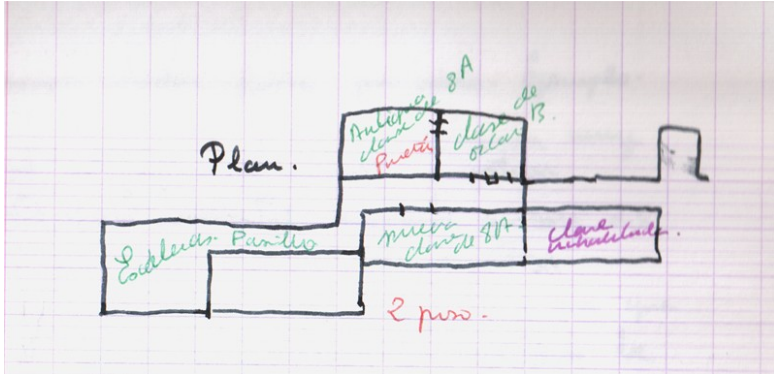 Antigua
clase de 8A
Puerta
clase de
octavo B.
Plan.
Escaleras. Pasillo
nueva
clase
de 8A.
clase
2 piso.